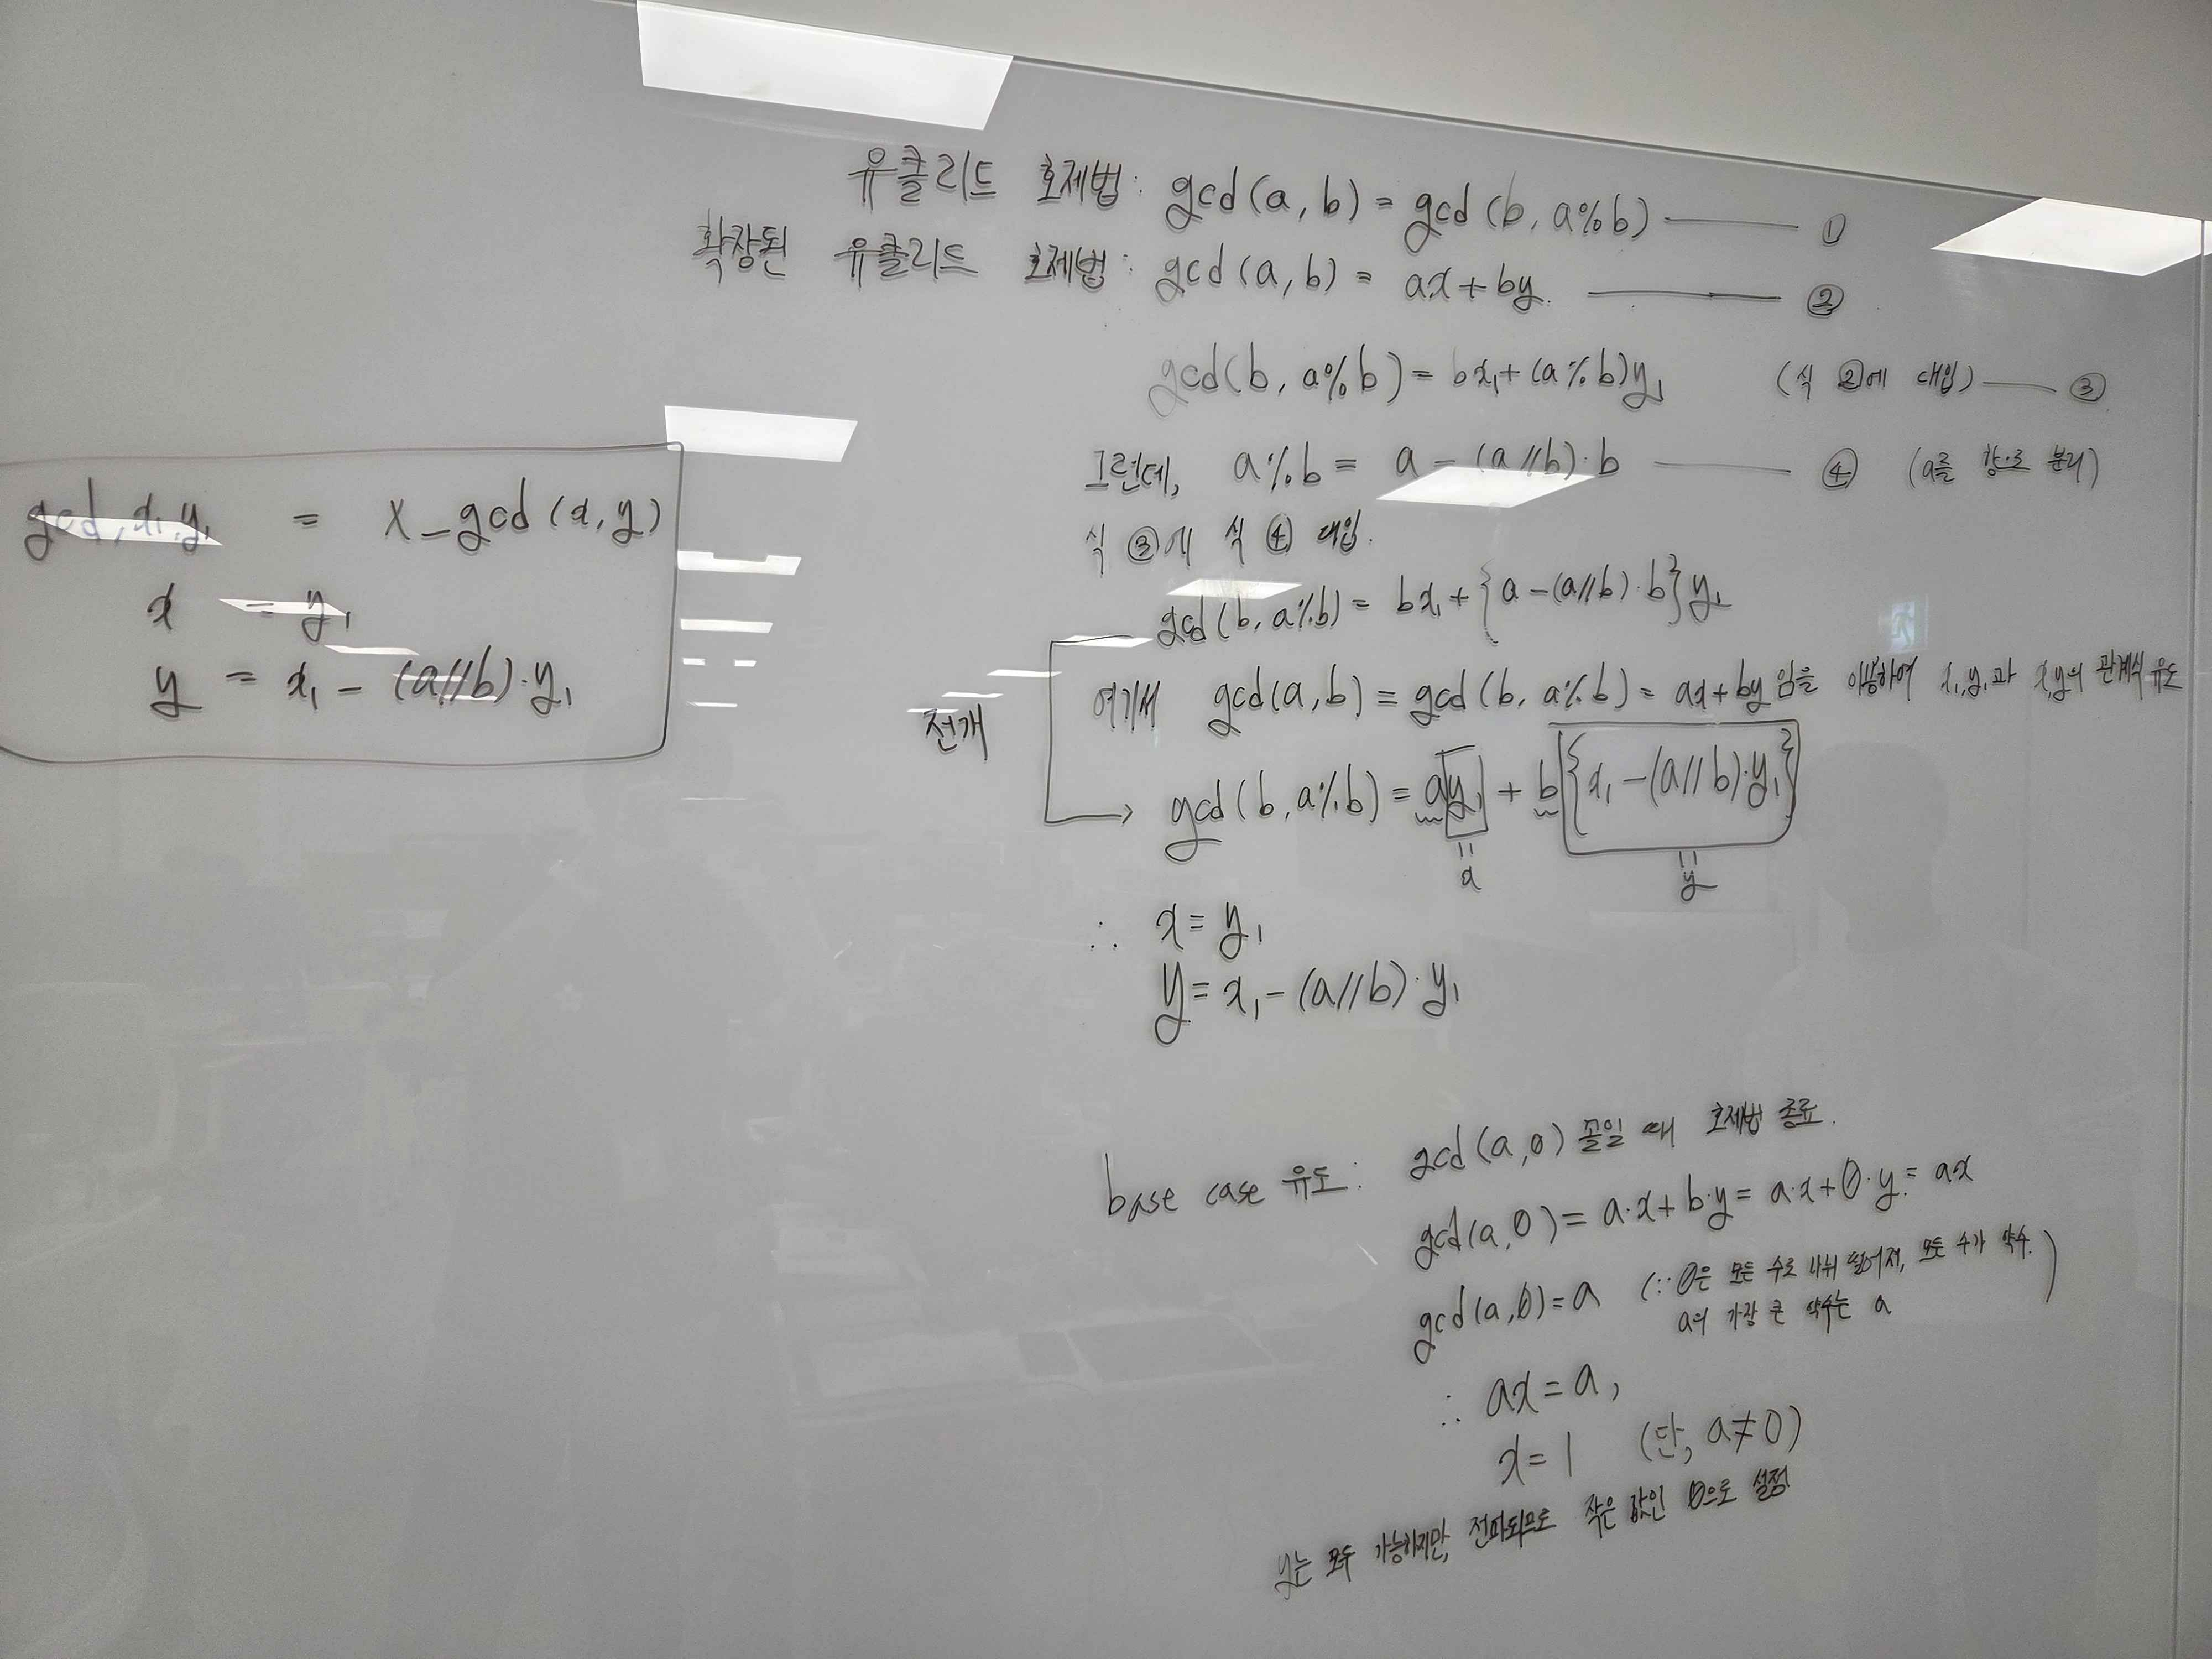 유클리드 호제법: gcd(a, b) = gcd(b, a%b) ——— ①
확장된 유클리드 호제법: gcd(a, b) = ax+by. ——— ②
gcd(b, a%b) = bx₁+(a%b)y₁ (식 ②에 대입) —— ③
그런데, a%b = a - (a//b)·b ——— ④ (a를 항으로 분리)
식 ③에 식 ④ 대입.
gcd(b, a%b) = bx₁+{a-(a//b)·b}y₁
여기서 gcd(a,b) = gcd(b, a%b) = ax+by 임을 이용하여 x₁,y₁과 x,y의 관계식 유도
전개
gcd(b, a%b) = ay₁ + b{x₁-(a//b)·y₁}
=x =y
∴ x = y₁
y = x₁-(a//b)·y₁
gcd, x₁,y₁ = x_gcd(x,y)
x = y₁
y = x₁ - (a//b)·y₁
base case 유도: gcd(a,0) 꼴일 때 호제법 종료.
gcd(a,0) = a·x+b·y = a·x+0·y = ax
gcd(a,0)=a (∵ 0은 모든 수로 나눠 떨어져, 모든 수가 약수.
a의 가장 큰 약수는 a)
∴ ax=a,
x=1 (단, a≠0)
y는 모두 가능하지만, 전파되므로 작은 값인 0으로 설정